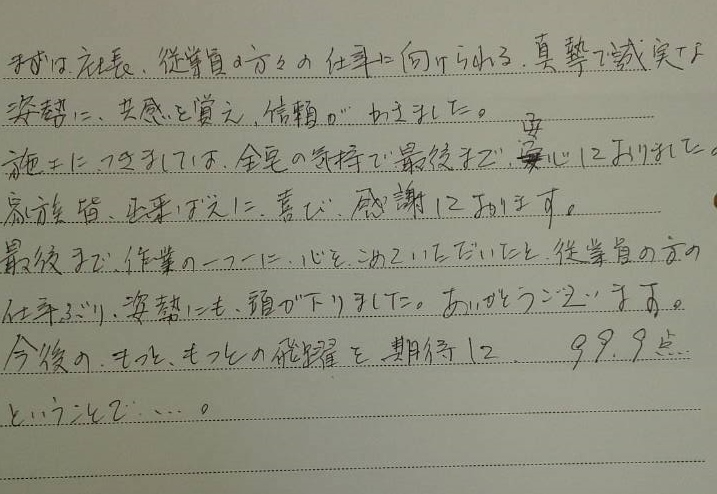 まずは社長、従業員の方々の仕事に向けられる、真摯で誠実な
姿勢に、共感を覚え、信頼がわきました。
施工につきましては、全宅の気持で最後まで、安心しておりました。
家族皆、出来ばえに、喜び、感謝しております。
最後まで、作業の一つ一つに、心を、こめていただいたと、従業員の方の
仕事ぶり、姿勢にも、頭が下りました。ありがとうございます。
今後の、もっと、もっとの飛躍を期待して 99.9点
ということで……。